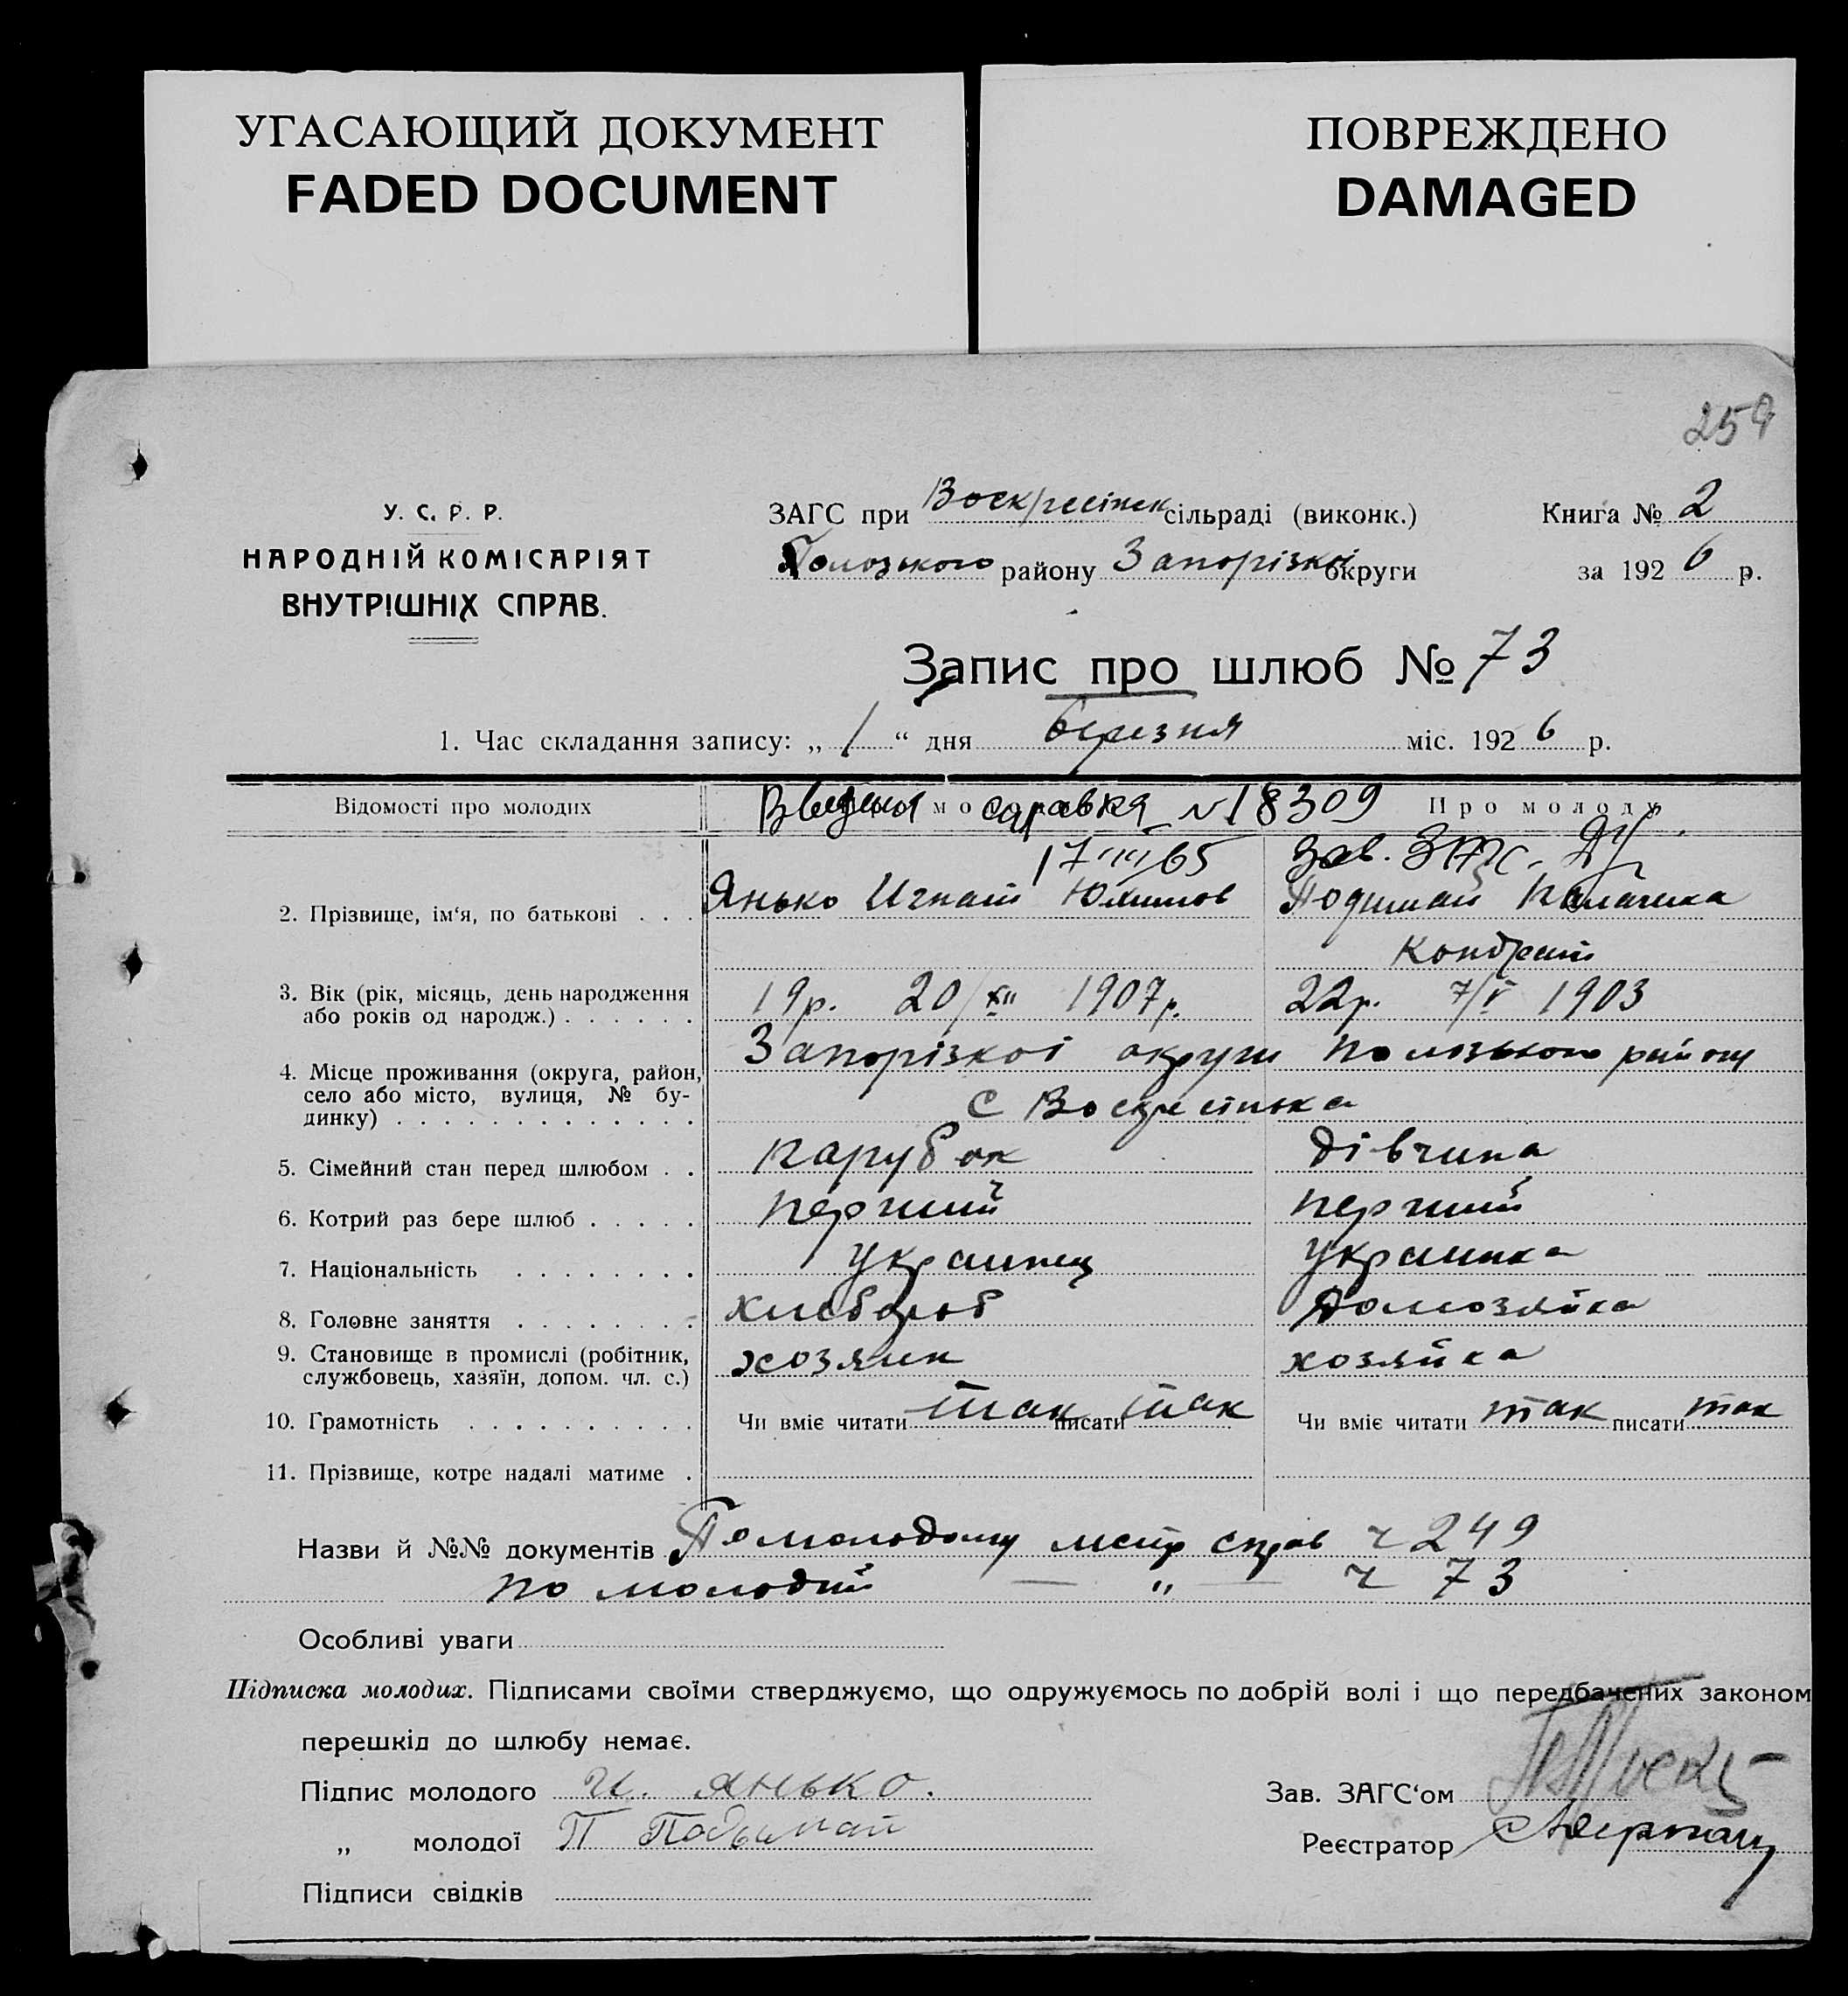 УГАСАЮЩИЙ ДОКУМЕНТ
FADED DOCUMENT
ПОВРЕЖДЕНО
DAMAGED
259
У. С. Р. Р.
НАРОДНІЙ КОМІСАРІЯТ
ВНУТРІШНІХ СПРАВ.
ЗАГС при Воскресінск сільраді (виконк.)
Пологзького району Запорізкої округи
Книга № 2
за 1926 р.
Запис про шлюб № 73
1. Час складання запису: „ 1 “ дня березня міс. 1926 р.
Відомості про молодих
Про молоду
справка №18309
17/III 65
Зав. ЗАГС.
2. Прізвище, ім‘я, по батькові . . . Янько Игнат Юхимов Подимай Палачика
Кондрат
3. Вік (рік, місяць, день народження
або років од народж.) . . . . . . 19р. 20/XII 1907р. 22р. 7/V 1903
4. Місце проживання (округа, район, Запорізкої округи Пологзького району
село або місто, вулиця, № бу-
динку) . . . . . . . . . . . . . с Воскресінка
5. Сімейний стан перед шлюбом . . парубок дівчина
6. Котрий раз бере шлюб . . . . . перший перший
7. Національність . . . . . . . . украинец украинка
8. Головне заняття . . . . . . . . хлебороб домозяйка
9. Становище в промислі (робітник,
службовець, хазяїн, допом. чл. с.) хозяин хозяйка
10. Грамотність . . . . . . . . . . Чи вміє читати так писати так Чи вміє читати так писати так
11. Прізвище, котре надалі матиме .
Назви й №№ документів По молодому метр справ ч 249
по молодій — „ — ч 73
Особливі уваги
Підписка молодих. Підписами своїми стверджуємо, що одружуємось по добрій волі і що передбачених законом
перешкід до шлюбу немає.
Підпис молодого И. Янько.
„ молодої П Подымай
Підписи свідків
Зав. ЗАГС‘ом
Реєстратор